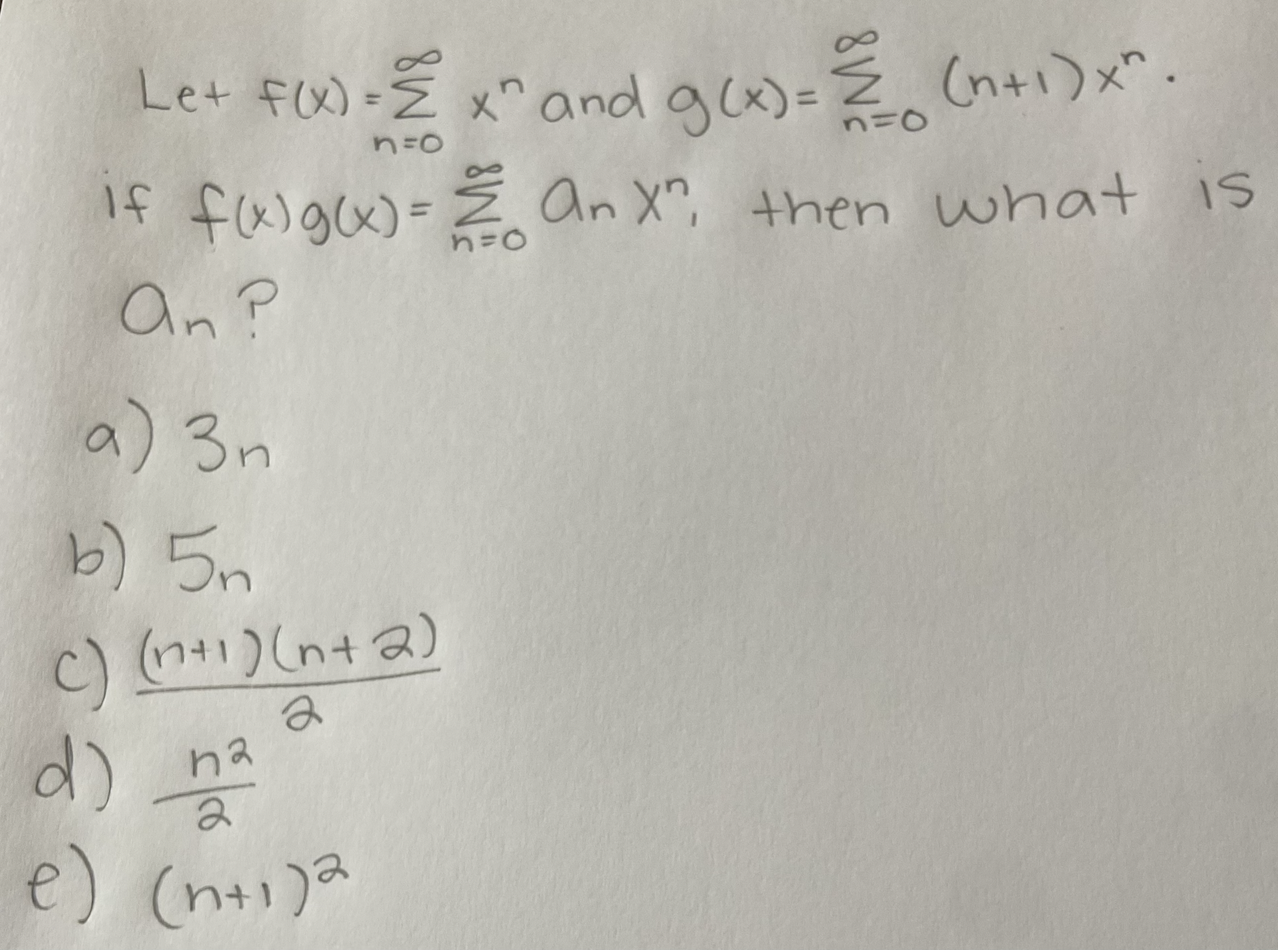 Let f(x) = ∑_{n=0}^{∞} xⁿ and g(x) = ∑_{n=0}^{∞} (n+1)xⁿ.
if f(x)g(x) = ∑_{n=0}^{∞} aₙxⁿ, then what is
aₙ?
a) 3n
b) 5n
c) (n+1)(n+2)/2
d) n²/2
e) (n+1)²